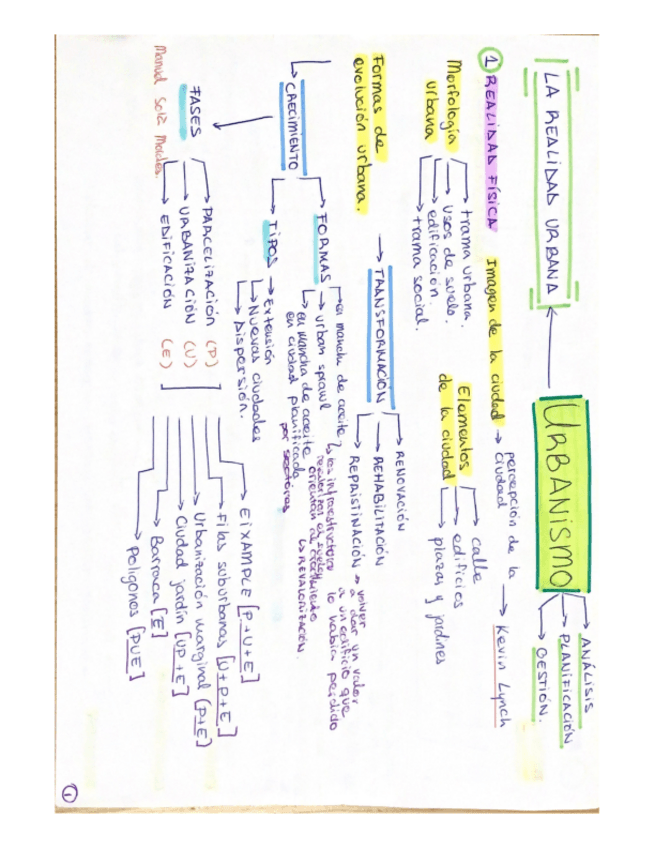 URBANISMO
ANÁLISIS
PLANIFICACIÓN
GESTIÓN.
LA REALIDAD URBANA
1 REALIDAD FÍSICA
Imagen de la ciudad → percepción de la ciudad → Kevin Lynch
Morfología urbana
trama urbana.
usos de suelo.
edificación.
trama social.
Elementos de la ciudad
calle
edificios
plazas y jardines
Formas de evolución urbana.
TRANSFORMACIÓN
RENOVACIÓN
REHABILITACIÓN
REPRISTINACIÓN → volver a dar un valor a un edificio que lo había perdido
↳ REVALORIZACIÓN.
CRECIMIENTO
FORMAS
en mancha de aceite
urban sprawl
en mancha de aceite en ciudad planificada por sectores
las infraestructuras
orientan el crecimiento
TIPOS
Extensión
Nuevas ciudades
Dispersión.
FASES
PARCELIZACIÓN (P)
URBANIZACIÓN (U)
EDIFICACIÓN (E)
Manuel Solà Morales.
EIXAMPLE [P+U+E]
Filas suburbanas [U+P+E]
Urbanización marginal (P+E)
Ciudad jardín [UP+E]
Barraca [E]
Polígonos [PUE]
1